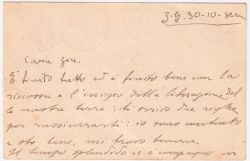 Z.G. 30-10- sera
Cara zia,
È finito tutto ed è finito bene con la
riscossa e l'insegna della liberazione del
le nostre terre: ti scrivo due righe
per rassicurarti: io sono contento
e sto bene, mi trovo
Il tempo splendido ci è compagno in